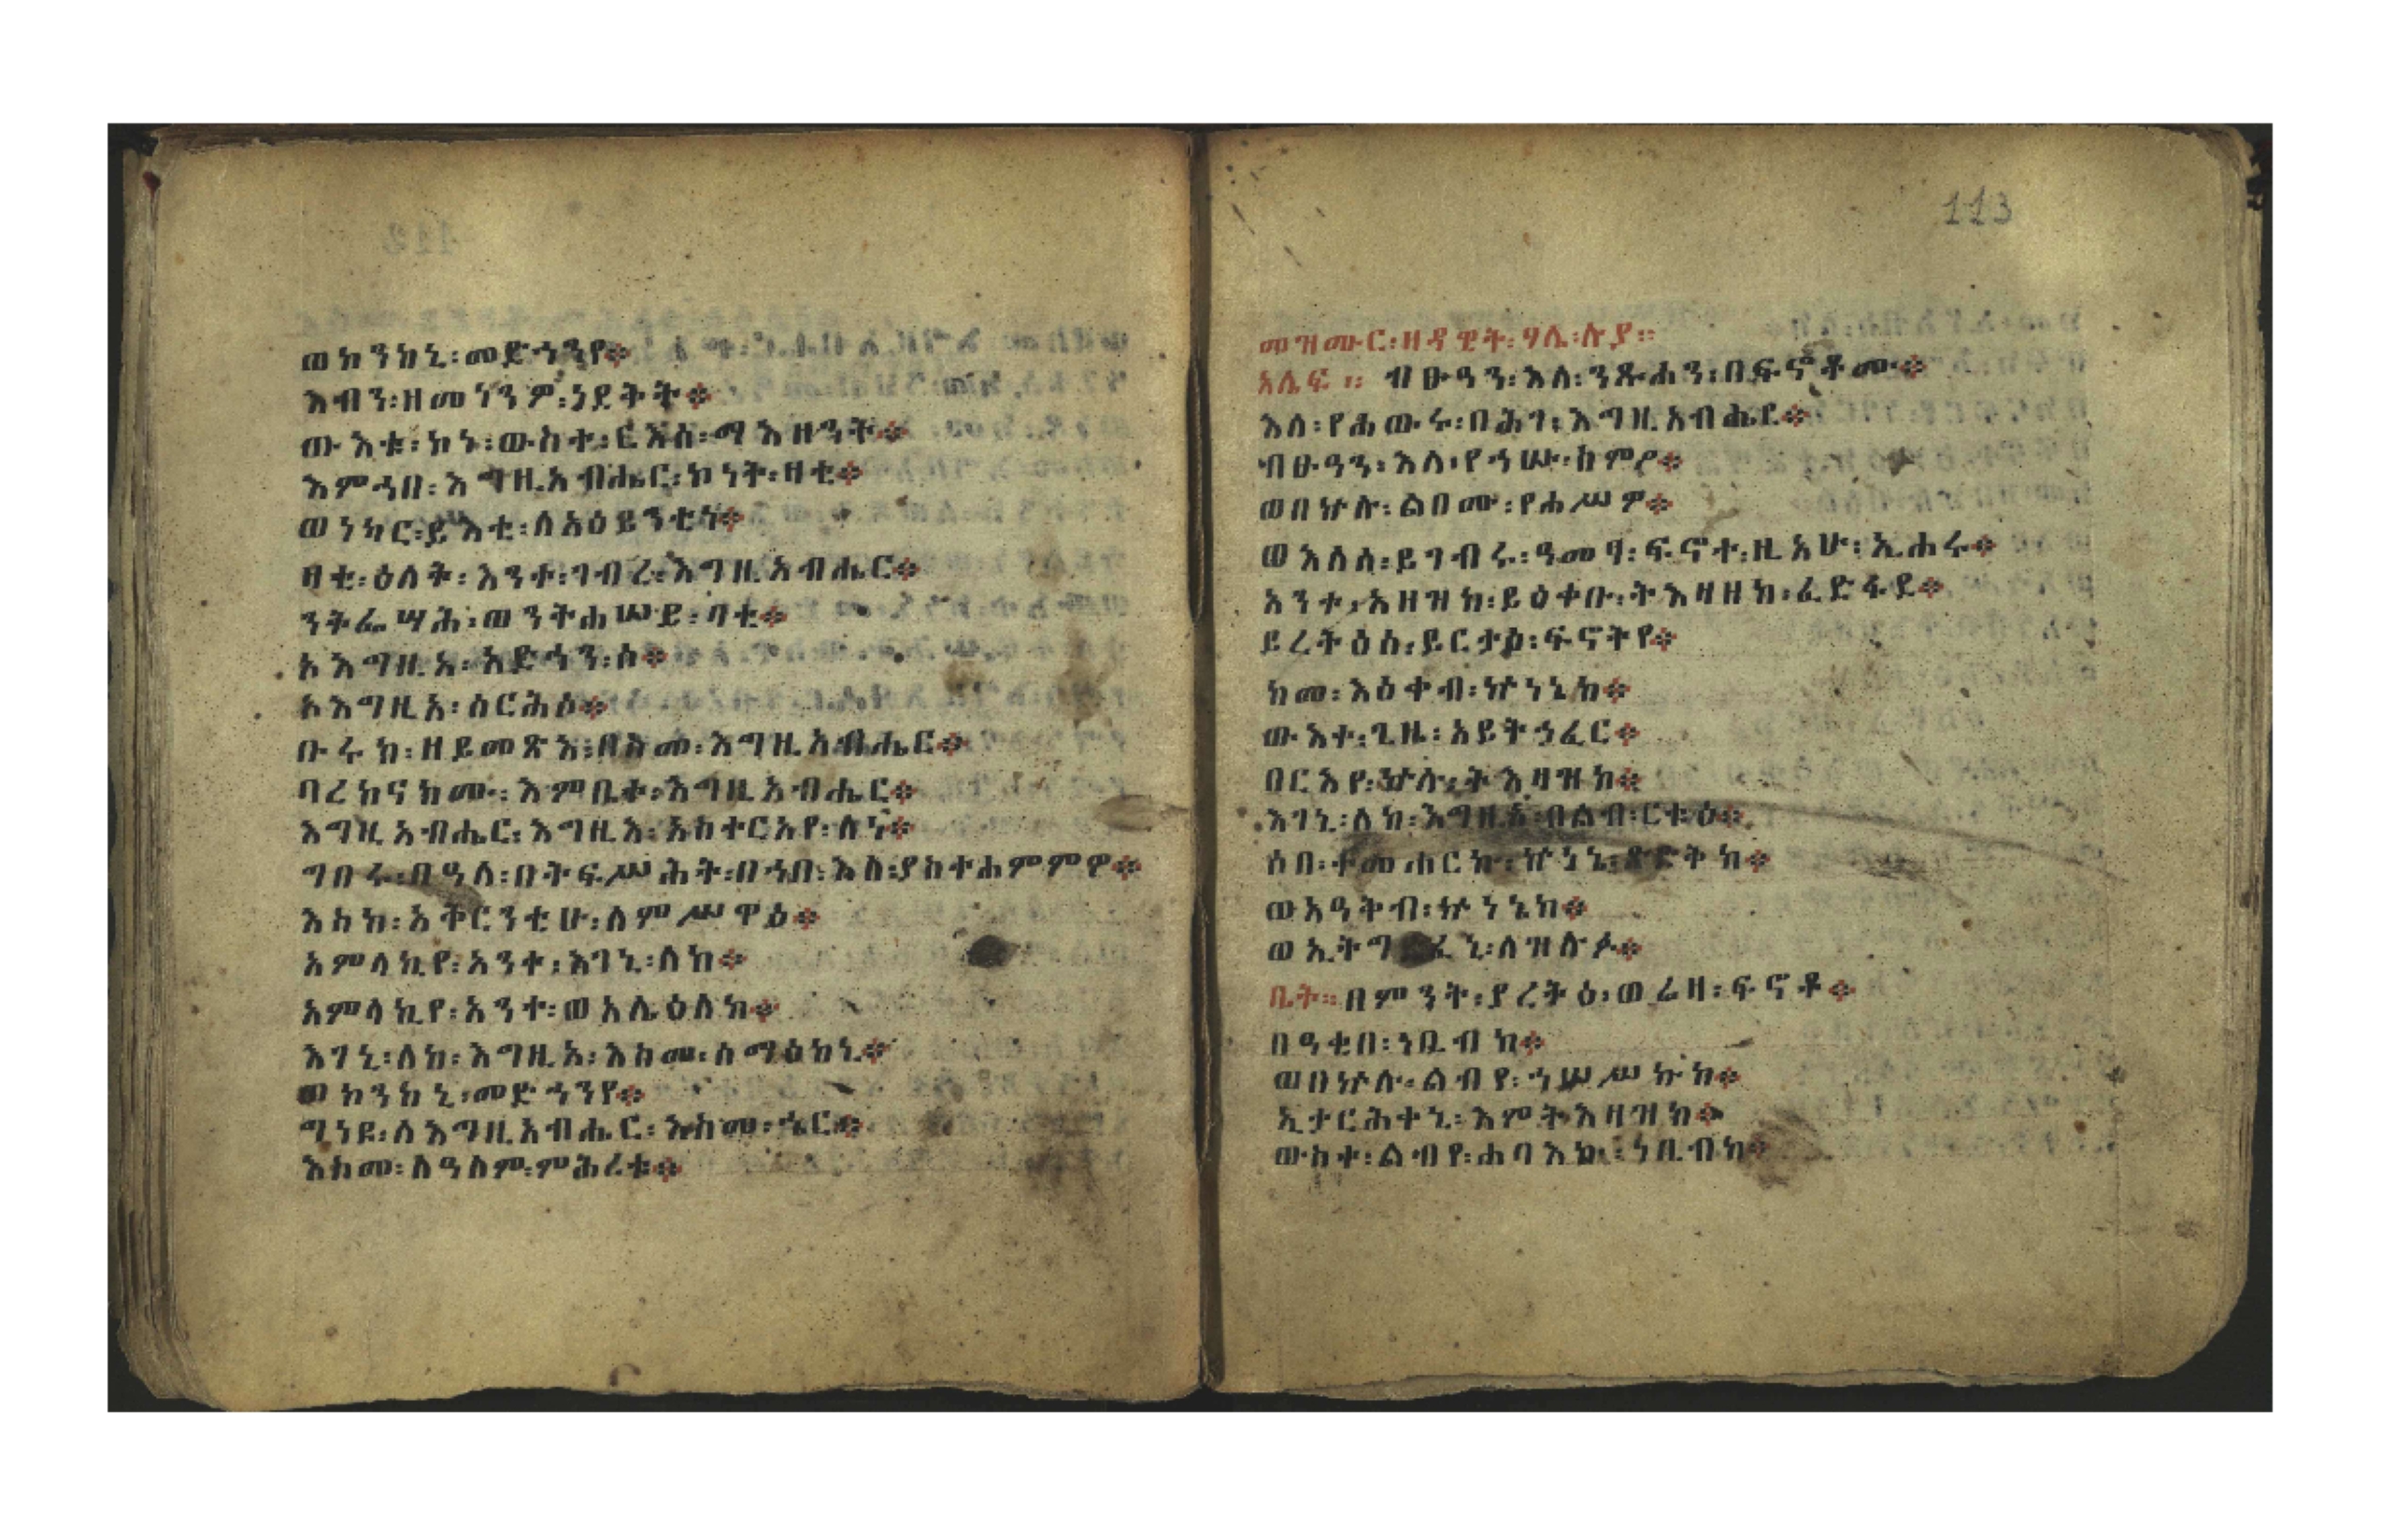 ወኮንከኒ፡መድኀንየ፨
እብን፡ዘመነንዎ፡ነደቅት፨
ውእቱ፡ኮነ፡ውስተ፡ርእሰ፡ማእዘንት፨
እምኀበ፡እግዚአብሔር፡ኮነት፡ዛቲ፨
ወነካር፡ይእቲ፡ለአዕይንቲነ፨
ዛቲ፡ዕለት፡እንተ፡ገብረ፡እግዚአብሔር፨
ንትፌሣሕ፡ወንትሐሠይ፡ባቲ፨
ኦእግዚአ፡አድኀን፡ሶ፨
ኦእግዚአ፡ሰርሕሶ፨
ቡሩክ፡ዘይመጽእ፡በስመ፡እግዚአብሔር፨
ባረክናክሙ፡እምቤተ፡እግዚአብሔር፨
እግዚአብሔር፡እግዚእ፡አስተርአየ፡ለነ፨
ግበሩ፡በዓለ፡በትፍሥሕት፡በኀበ፡እለ፡ያስተሐምምዎ፨
እስከ፡አቅርንቲሁ፡ለምሥዋዕ፨
አምላኪየ፡አንተ፡እገኒ፡ለከ፨
አምላኪየ፡አንተ፡ወአሌዕለከ፨
እገኒ፡ለከ፡እግዚአ፡እስመ፡ሰማዕከኒ፨
ወኮንከኒ፡መድኀንየ፨
ግነዩ፡ለእግዚአብሔር፡እስመ፡ኄር፨
እስመ፡ለዓለም፡ምሕረቱ፨
113
መዝሙር፡ዘዳዊት፡ሃሌ፡ሉያ፡፡
አሌፍ፡፡ ብፁዓን፡እለ፡ንጹሐን፡በፍኖቶሙ፨
እለ፡የሐውሩ፡በሕገ፡እግዚአብሔር፨
ብፁዓን፡እለ፡የኀሡ፡ስምዖ፨
ወበኵሉ፡ልቦሙ፡የሐሥዎ፨
ወአኮሰ፡ይገብሩ፡ዓመፃ፡ፍኖተ፡ዚአሁ፡ኢሐሩ፨
አንተ፡አዘዝከ፡ይዕቀቡ፡ትእዛዘከ፡ፈድፋደ፨
ይረትዕሰ፡ይርታዕ፡ፍኖትየ፨
ከመ፡እዕቀብ፡ኵነኔከ፨
ውእተ፡ጊዜ፡አይትኀፈር፨
በርእየ፡ኵሉ፡ትእዛዝከ፨
እገኒ፡ለከ፡እግዚአ፡በልብ፡ርቱዕ፨
ሶበ፡ተመሐርኩ፡ኵነኔ፡ጽድቅከ፨
ወአዓቅብ፡ኵነኔከ፨
ወኢትግድፈኒ፡ለዝሉፉ፨
ቤት፡፡በምንት፡ያረትዕ፡ወሬዛ፡ፍኖቶ፨
በዓቂበ፡ነቢብከ፨
ወበኵሉ፡ልብየ፡ኀሠሥኩከ፨
ኢታርሕቀኒ፡እምትእዛዝከ፨
ውስተ፡ልብየ፡ሐባእኩ፡ነቢብከ፨